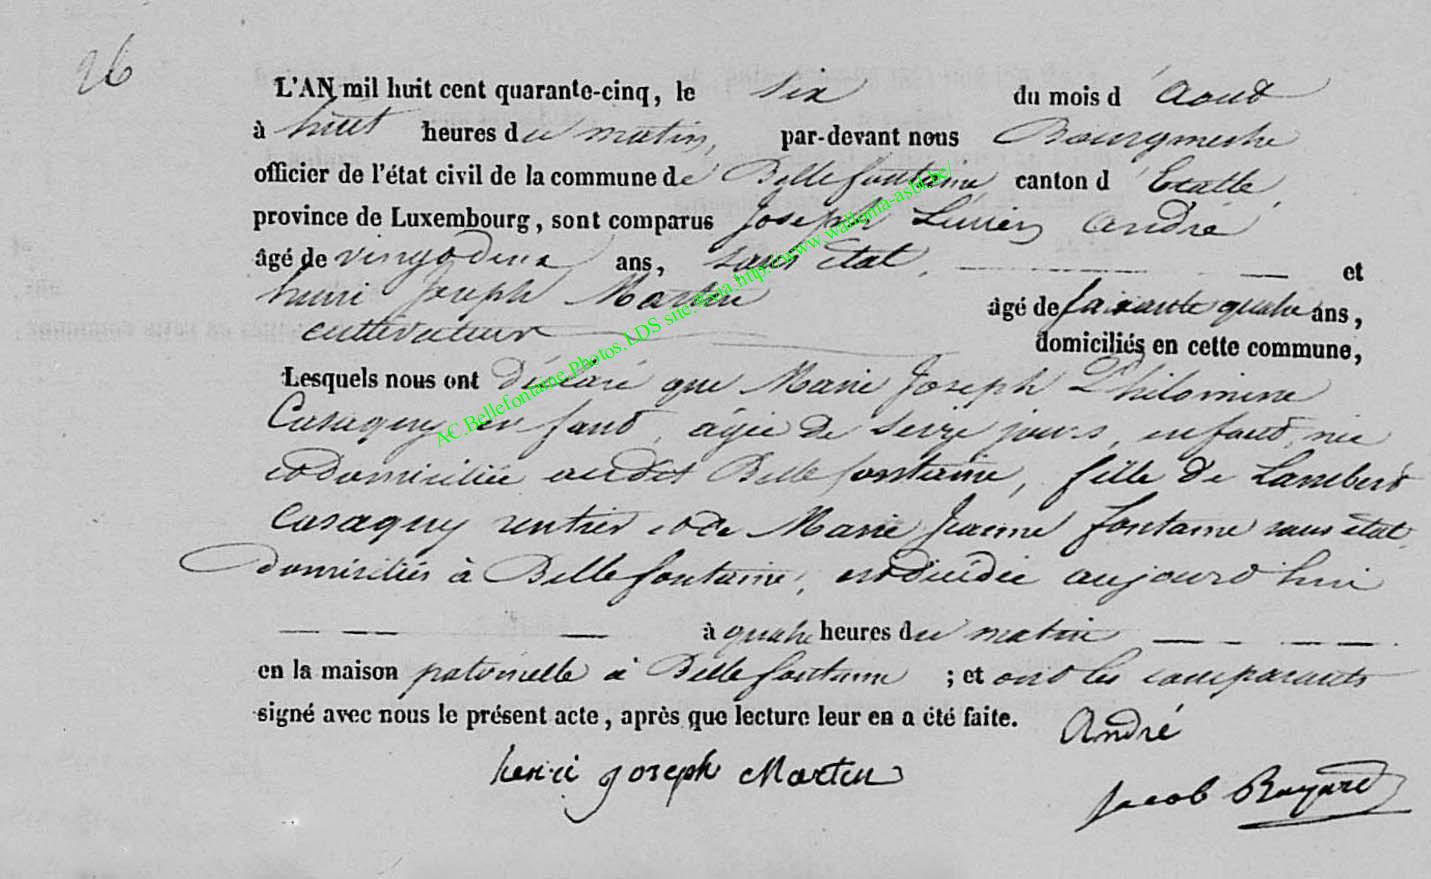 26
L'AN mil huit cent quarante-cinq, le six du mois d'Aout
à huit heures du matin, par-devant nous Bourgmestre
officier de l'état civil de la commune de Bellefontaine canton d'Etalle,
province de Luxembourg, sont comparus Joseph Lucien André
âgé de vingt deux ans, sans état, et
henri Joseph Martin âgé de soixante quatre ans,
cultivateur domiciliés en cette commune,
Lesquels nous ont déclaré que Marie Joseph Philomine
Casaquy enfant, agée de seize jours, enfant, née
et domiciliée audit Bellefontaine, fille de Lambert
Casaquy rentier et de Marie Jeanne fontaine sans état
domiciliés à Bellefontaine, est décédée aujourd'hui
à quatre heures du matin
en la maison paternelle à Bellefontaine ; et ont les comparants
signé avec nous le présent acte, après que lecture leur en a été faite.
André
henri joseph Martin
Jacob Bayard
AC.Bellefontaine.Photos.LDS site. http://www.wallonia-asbl.be/